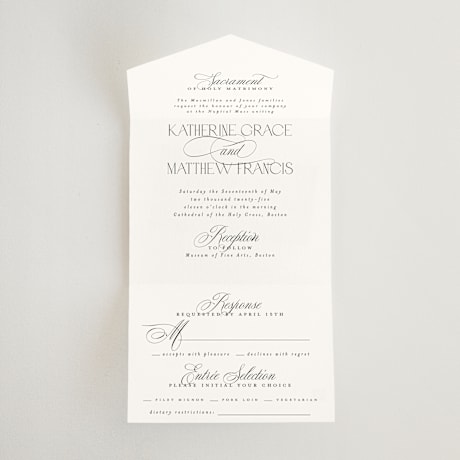 Sacrament
OF HOLY MATRIMONY
The Macmillan and Jones families
request the honour of your company
at the Nuptial Mass uniting
KATHERINE GRACE
and
MATTHEW FRANCIS
Saturday the Seventeenth of May
two thousand twenty-five
eleven o'clock in the morning
Cathedral of the Holy Cross, Boston
Reception
TO FOLLOW
Museum of Fine Arts, Boston
Response
REQUESTED BY APRIL 15TH
M
accepts with pleasure declines with regret
Entrée Selection
PLEASE INITIAL YOUR CHOICE
FILET MIGNON PORK LOIN VEGETARIAN
dietary restrictions: